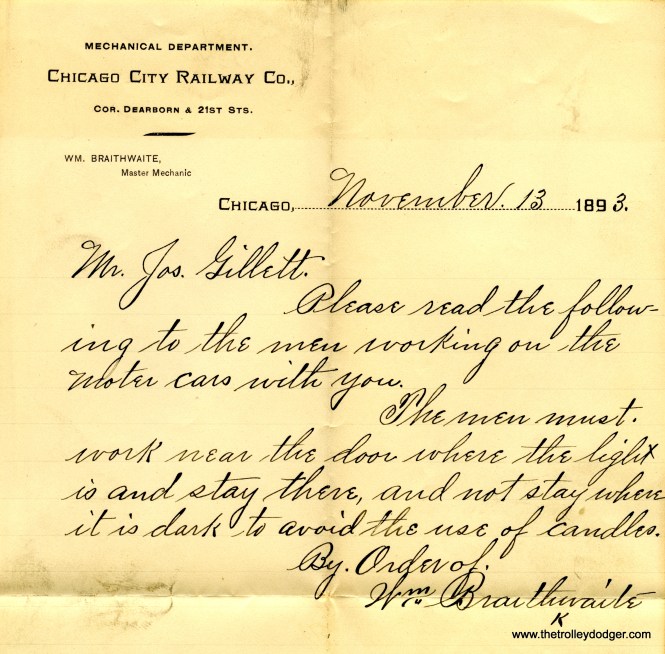 MECHANICAL DEPARTMENT.
CHICAGO CITY RAILWAY CO.,
COR. DEARBORN & 21ST STS.
WM. BRAITHWAITE,
Master Mechanic
CHICAGO, November. 13 1893.
Mr. Jos. Gillett.
Please read the follow-
ing to the men working on the
moter cars with you.
The men must.
work near the door where the light
is and stay there, and not stay where
it is dark to avoid the use of candles.
By. Order of.
Wm Braithwaite
K
www.thetrolleydodger.com